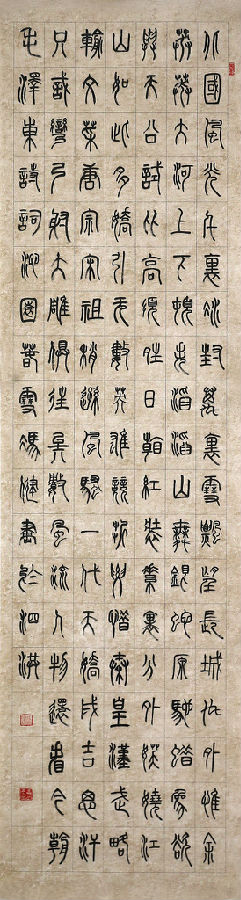 北國風光千裏冰封萬裏雪飄望長城內外惟余
莽莽大河上下頓失滔滔山舞銀蛇原馳蠟象欲
與天公試比高須晴日看紅裝素裹分外妖嬈江
山如此多嬌引無數英雄競折腰惜秦皇漢武略
輸文采唐宗宋祖稍遜風騷一代天驕成吉思汗
只識彎弓射大雕俱往矣數風流人物還看今朝
毛澤東詩詞沁園春雪書於泗洪